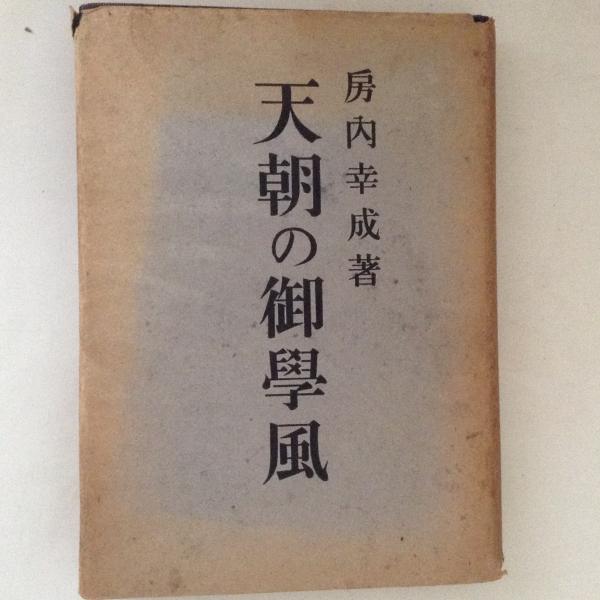 房内幸成著
天朝の御學風